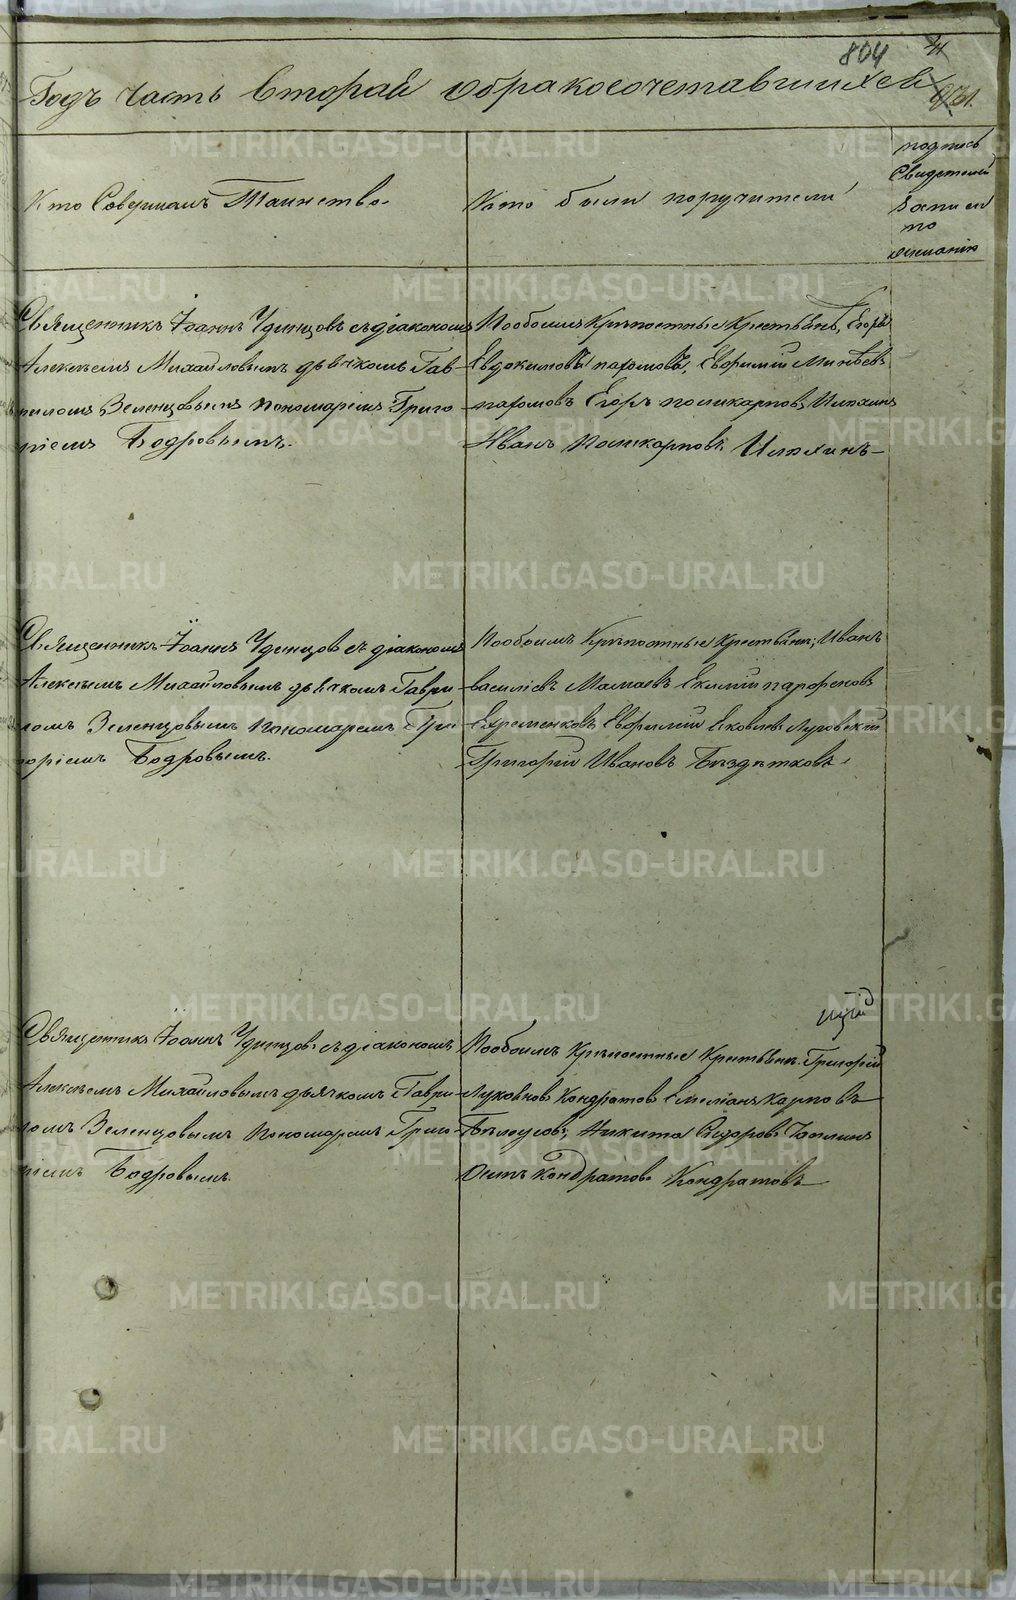 804
Годъ часть вторая о бракосочетавшихся
Кто Совершалъ Таинство.
Кто были поручители
подпись
Свидетелей
записи
по
желанію
Священникъ Іоаннъ Удинцовъ съ діакономъ
Алексѣемъ Михайловымъ дьячкомъ Гав-
риломъ Зеленцовымъ пономаремъ Григо-
ріемъ Бодровымъ.
Пообоимъ Крѣпостные Крестьяне, Егоръ
Евдокимовъ пахомовъ, Евфимій Минѣевъ
пахомовъ Егоръ поликарповъ Илюхинъ
Иванъ Поликарповъ Илюхинъ
Священникъ Іоаннъ Удинцовъ съ діакономъ
Алексѣемъ Михайловымъ дьячкомъ Гаври-
ломъ Зеленцовымъ пономаремъ Гри-
горіемъ Бодровымъ.
Пообоимъ Крѣпостные Крестьяне; Иванъ
василіевъ Мамаевъ Екимій парфеновъ
Ефременковъ Евфимій Яковлевъ Луговскій
Григорій Ивановъ Бездѣтковъ
Священникъ Іоаннъ Удинцовъ съ діакономъ
Алексѣемъ Михайловымъ дьячкомъ Гаври-
ломъ Зеленцовымъ пономаремъ Григо-
ріемъ Бодровымъ.
Пообоимъ Крѣпостные Крестьяне Григорій
Кондратов Емеліанъ Карповъ
Бѣлоусовъ, Никита Сидоровъ
Осипъ Кондратовъ Кондратовъ
METRIKI.GASO-URAL.RU